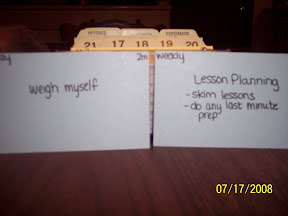 21 17 18 19 20
y
2m
weekly
weigh myself
Lesson Planning
- skim lessons
- do any last minute
prep
07/17/2008